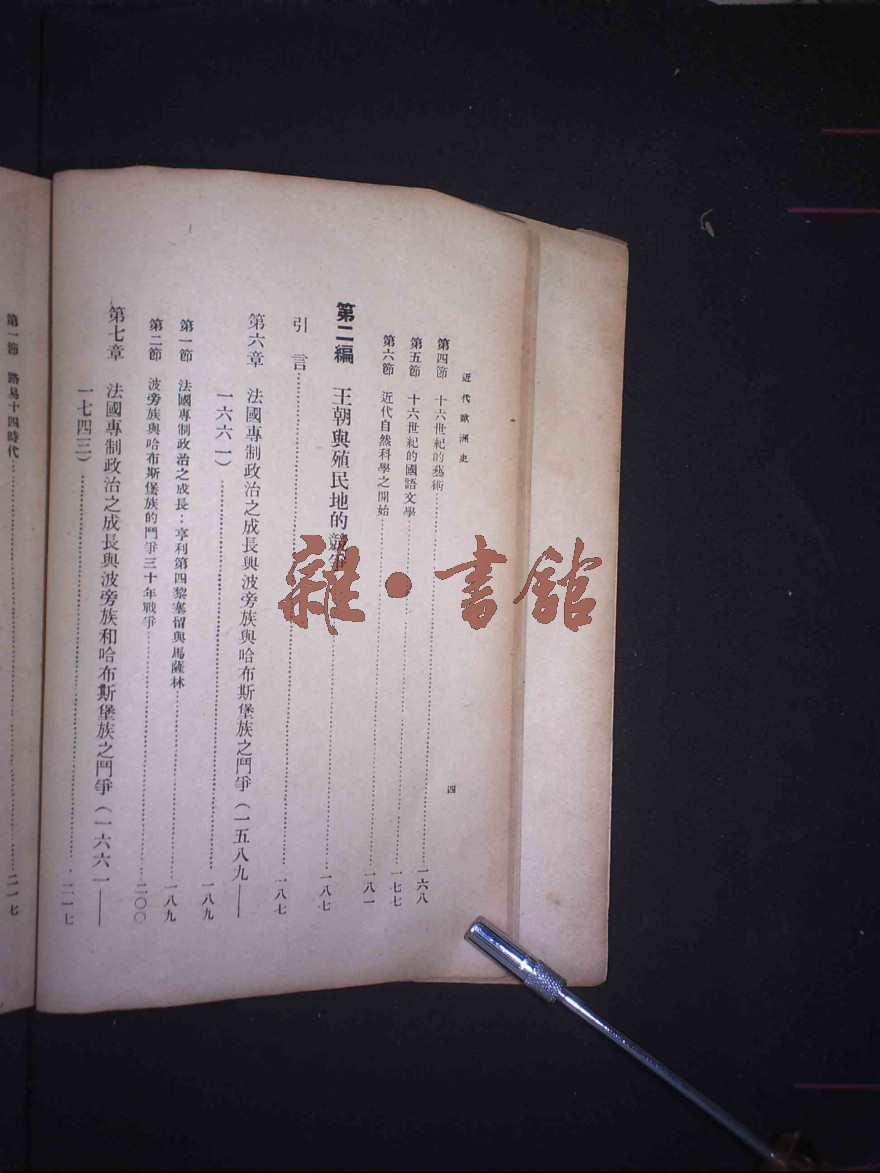 近代歐洲史
四
第四節 十六世紀的藝術……一六八
第五節 十六世紀的國語文學……一七七
第六節 近代自然科學之開始……一八一
第二編 王朝與殖民地的競爭……一八七
引言……一八七
第六章 法國專制政治之成長與波旁族與哈布斯堡族之鬥爭（一五八九——
一六六一）……一八九
第一節 法國專制政治之成長：亨利第四黎塞留與馬薩林……一八九
第二節 波旁族與哈布斯堡族的鬥爭三十年戰爭……二〇〇
第七章 法國專制政治之成長與波旁族和哈布斯堡族之鬥爭（一六六一——
一七四三）……二一七
第一節 路易十四時代……二一七
雜·書館